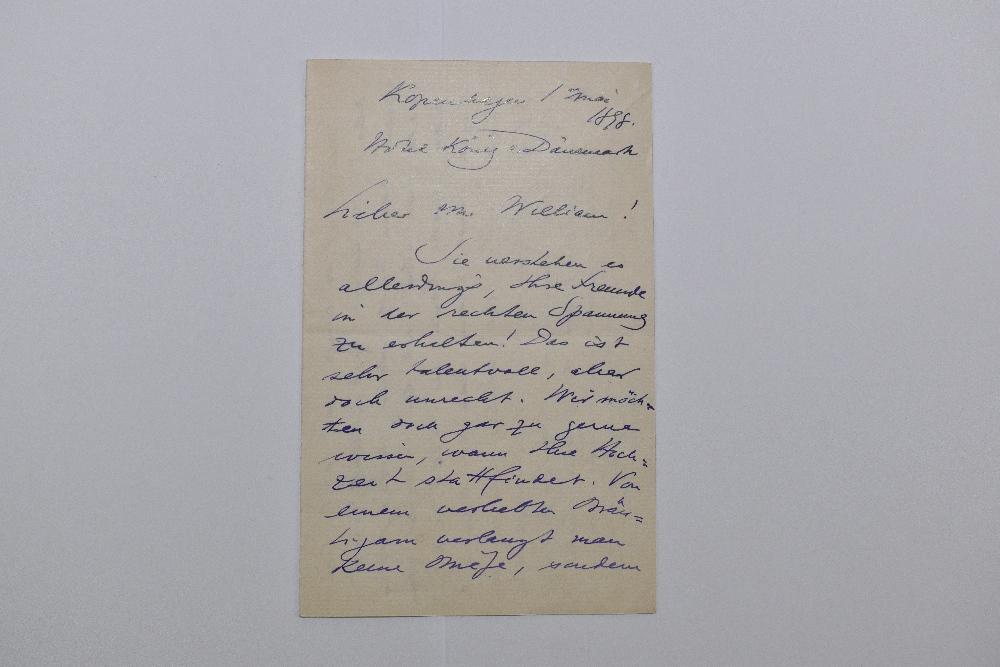 Kopenhagen 1 Mai
1898.
Hotel König v. Dänemark
Lieber Mr William!
Sie verstehen es
allerdings, Ihre Freunde
in der rechten Spannung
zu erhalten! Das ist
sehr talentvoll, aber
doch unrecht. Wir möch=
ten doch gar zu gerne
wissen, wann Ihre Hoch=
zeit stattfindet. Von
einem verliebten Bräu=
tigam verlangt man
keine Briefe, sondern